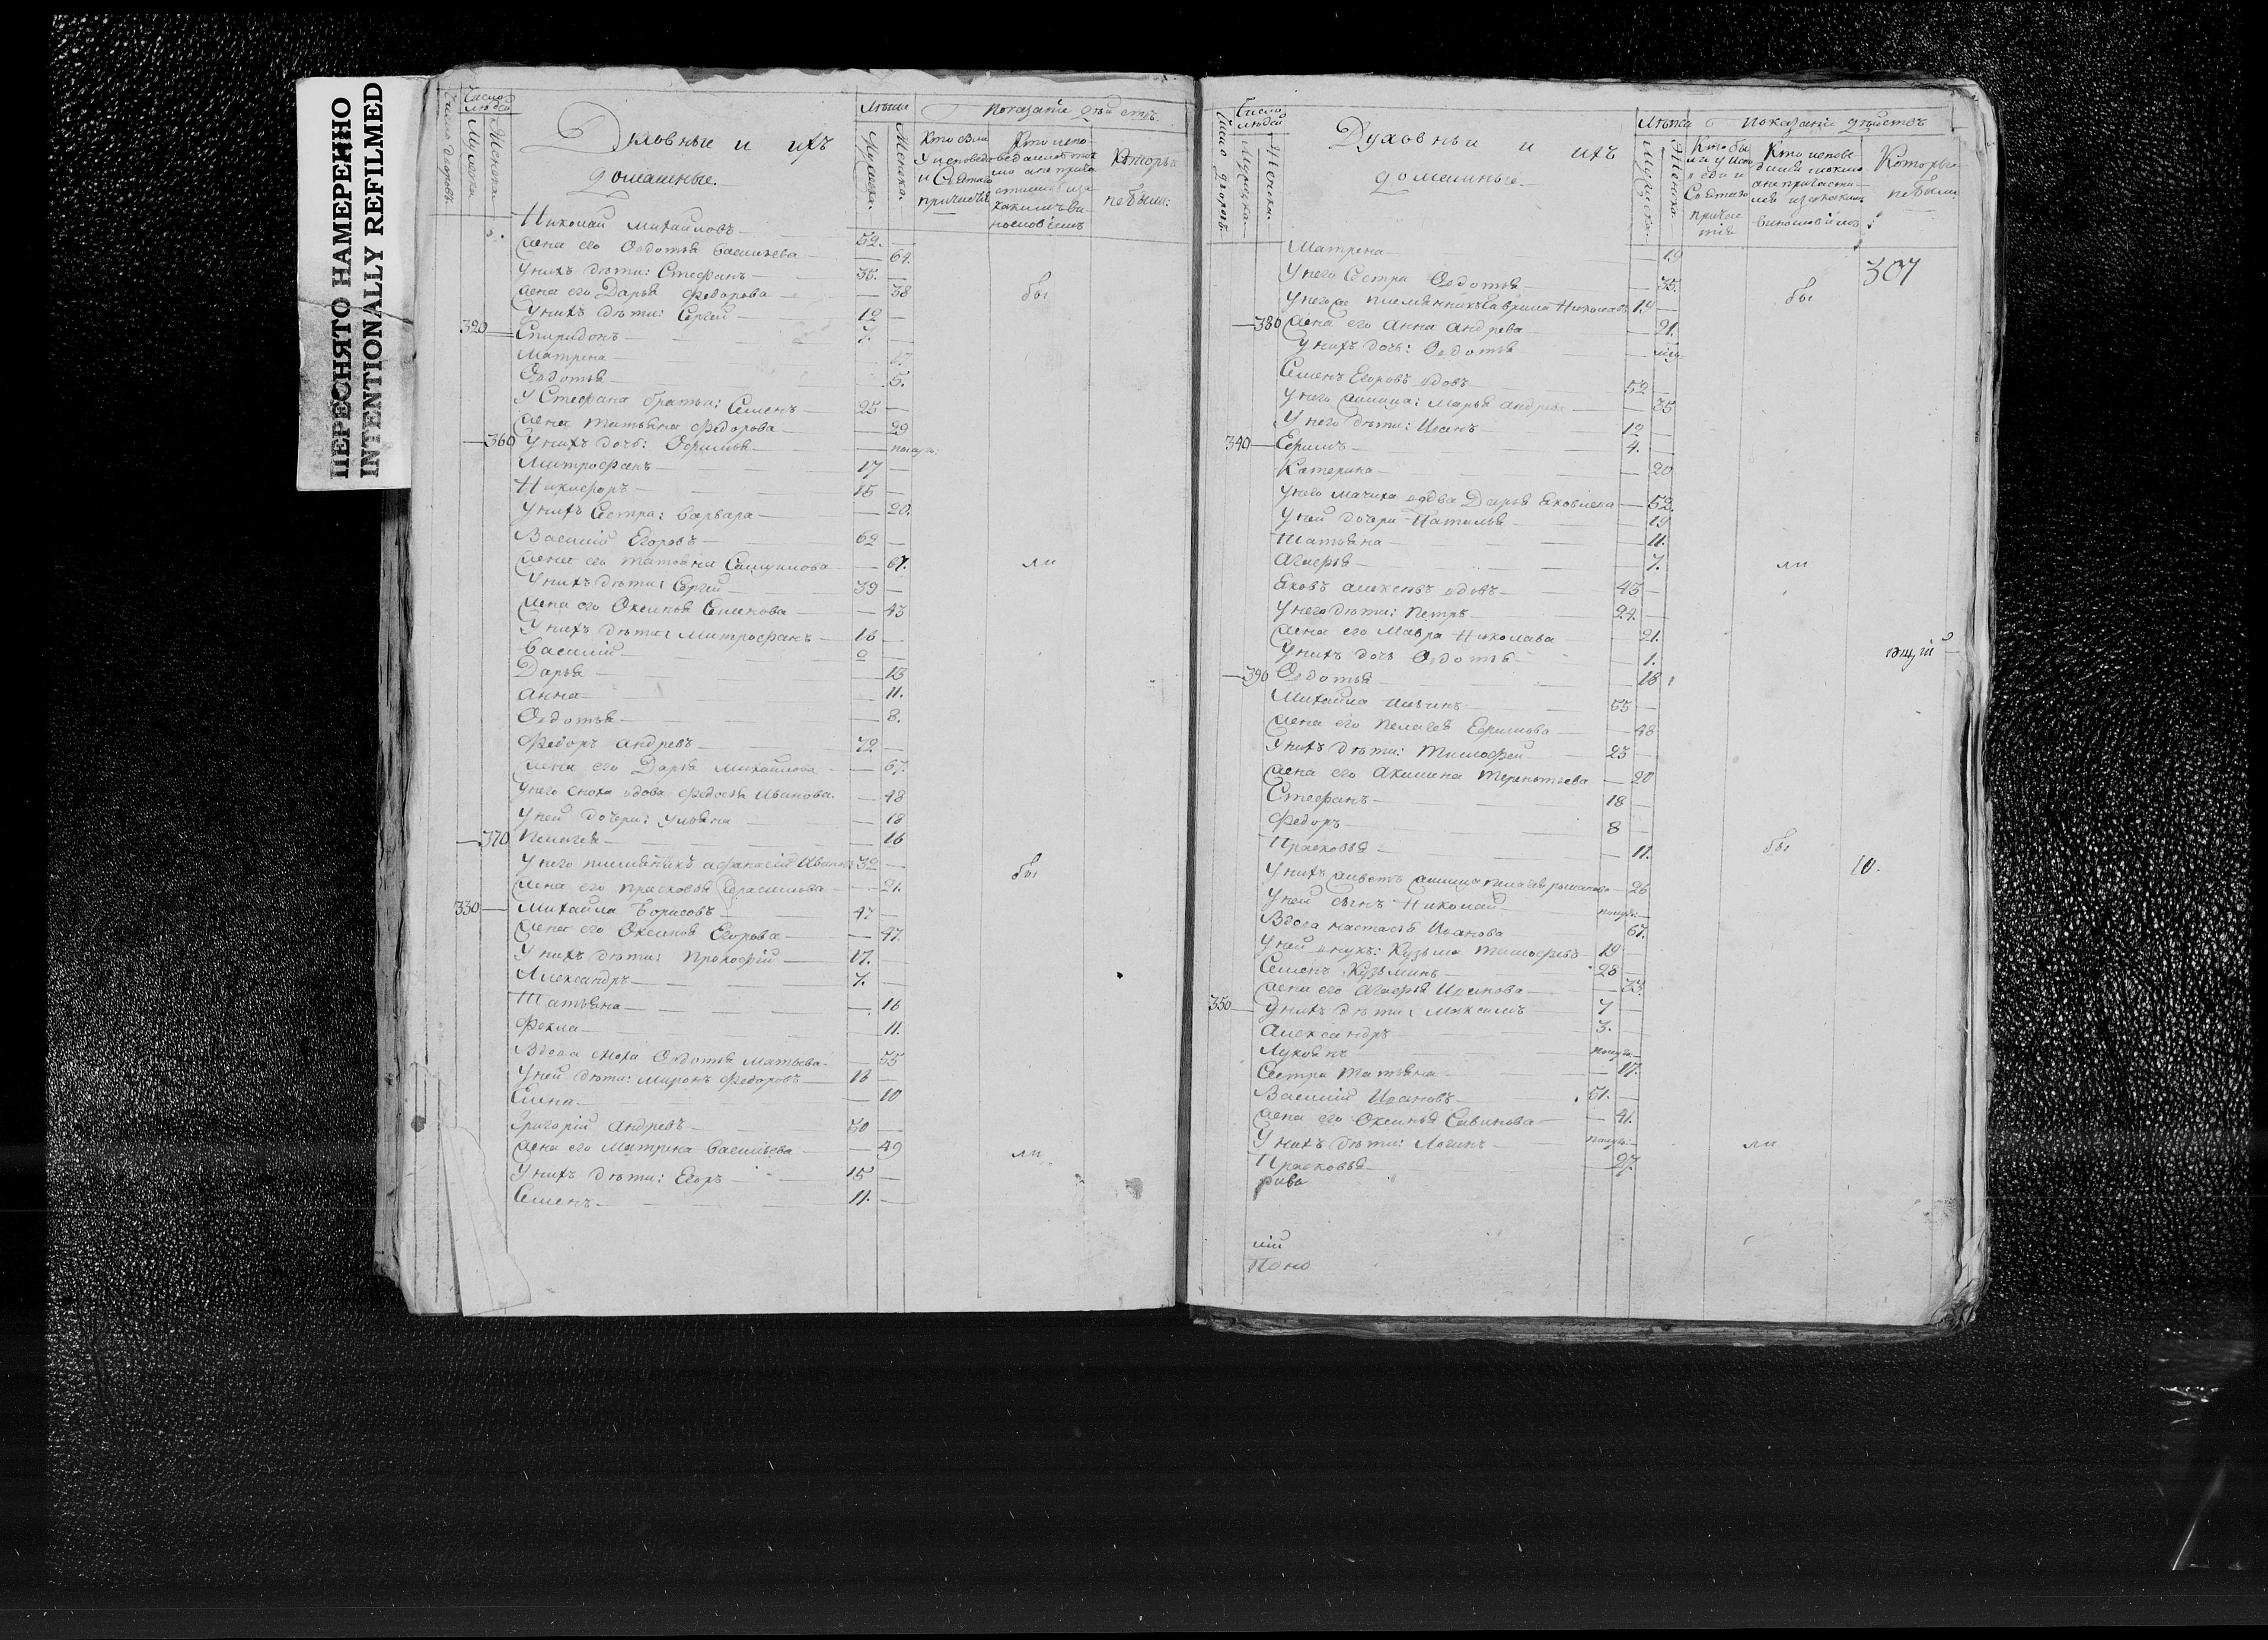 ПЕРЕСНЯТО НАМЕРЕННО
INTENTIONALLY REFILMED
Число дворовъ
Число людей
Мужеска
Женска
Духовные и ихъ
домашные.
Лѣта
Мужеска.
Женска.
Показанїе дѣйствъ.
Кто были у исповеди и Святаго причастїя
Кто исповедался токмо а не причастился и за какимъ виннословїемъ
Которые не были:
Николай Михайловъ 52.
Жена его Овдотья Васильева 64.
У нихъ дѣти: Стефанъ 35.
Жена его Дарья Федорова 38 бы
У нихъ дѣти: Сергей 12
320 Спиридонъ 7.
Матрена 17.
Овдотья 5.
У Стефана братья: Семенъ 25
Жена Татьяна Федорова 29
360 У нихъ дочь: Офимья полуго:
Митрофанъ 17
Никифоръ 15
У нихъ Сестра: Варвара 20.
Василїй Егоровъ 62
Жена его Татьяна Самуилова 67. ли
У нихъ дѣти: Сергей 39
Жена его Оксинья Семенова 43
У нихъ дѣти: Митрофанъ 16
Василїй 9
Дарья 13
Анна 11.
Овдотья 8.
Федоръ Андревъ 72
Жена его Дарья Михайлова 67.
У него сноха вдова Федосья Иванова. 48
У ней дочери: Ульяна 18
370 Пелагея 16
У него племянникъ Афанасїй Ивановъ 32
Жена его Прасковья Герасимова 21. бы
330 Михайла Борисовъ 47
Жена его Оксинья Егорова 47.
У нихъ дѣти: Прокофїй 17.
Александръ 7.
Татьяна 16
Фекла 11.
Вдова сноха Овдотья Матвева 55
У ней дѣти: Миронъ Федоровъ 16
Елена 10
Григорїй Андревъ 50
Жена его Матрена Васильева 49 ли
У нихъ дѣти: Егоръ 15
Семенъ 11.
Число дворовъ
Число людей
Мужеска
Женска
Духовныи и ихъ
домашные.
Лѣта
Мужеска.
Женска.
Показанїе дѣйствъ
Кто были у исповеди и Святаго причастїя
Кто исповедался токмо а не причастился и за какимъ виннословїемъ
Которые не были
Матрена 19
307
У него Сестра Овдотья 35. бы
У него же племянникъ Гаврила Николаевъ 19
380 Жена его Анна Андрева 21.
У нихъ дочь: Овдотья
Семенъ Егоровъ вдовъ 52
У него жилица: Марья Андрева 35
У него дѣти: Иванъ 12
340 Ефимъ 4.
Катерина 20
У него мачиха вдва Дарья Яковлева 52.
У ней дочери Наталья 19
Татьяна 11.
Агафья 7. ли
Яковъ Алексевъ вдовъ 43
У него дѣти: Петръ 24.
Жена его Мавра Николава 21.
У нихъ дочь Овдотья 1.
390 Овдотья 18
Михайла Ильинъ 55
Жена его Пелагея Ефимова 48
У нихъ дѣти: Тимофей 23
Жена его Акилина Терентьева 20
Стефанъ 18
Федоръ 8
Прасковья 11. бы
10.
У нихъ живетъ жилица Пелагея Романова 26
У ней сынъ Николай полуго:
Вдова Настасья Иванова 67.
У ней внукъ: Кузьма Тимофевъ 19
Семенъ Кузьминъ 28
Жена его Агафья Иванова 33.
350 У нихъ дѣти: Максимъ 7
Александръ 3.
Лукоянъ полуго
Сестра Татьяна 17.
Василїй Ивановъ 51.
Жена его Оксинья Савинова 41.
У нихъ дѣти: Логинъ полуго: ли
Прасковья 27.
рива
лїй
Поно